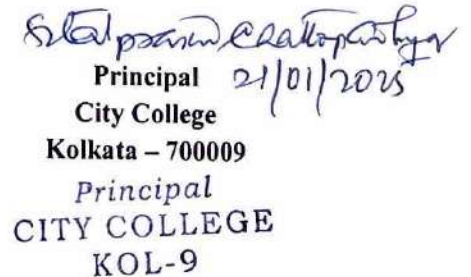 Sitalprasad Chattopadhyay
Principal 21/01/2025
City College
Kolkata – 700009
Principal
CITY COLLEGE
KOL-9